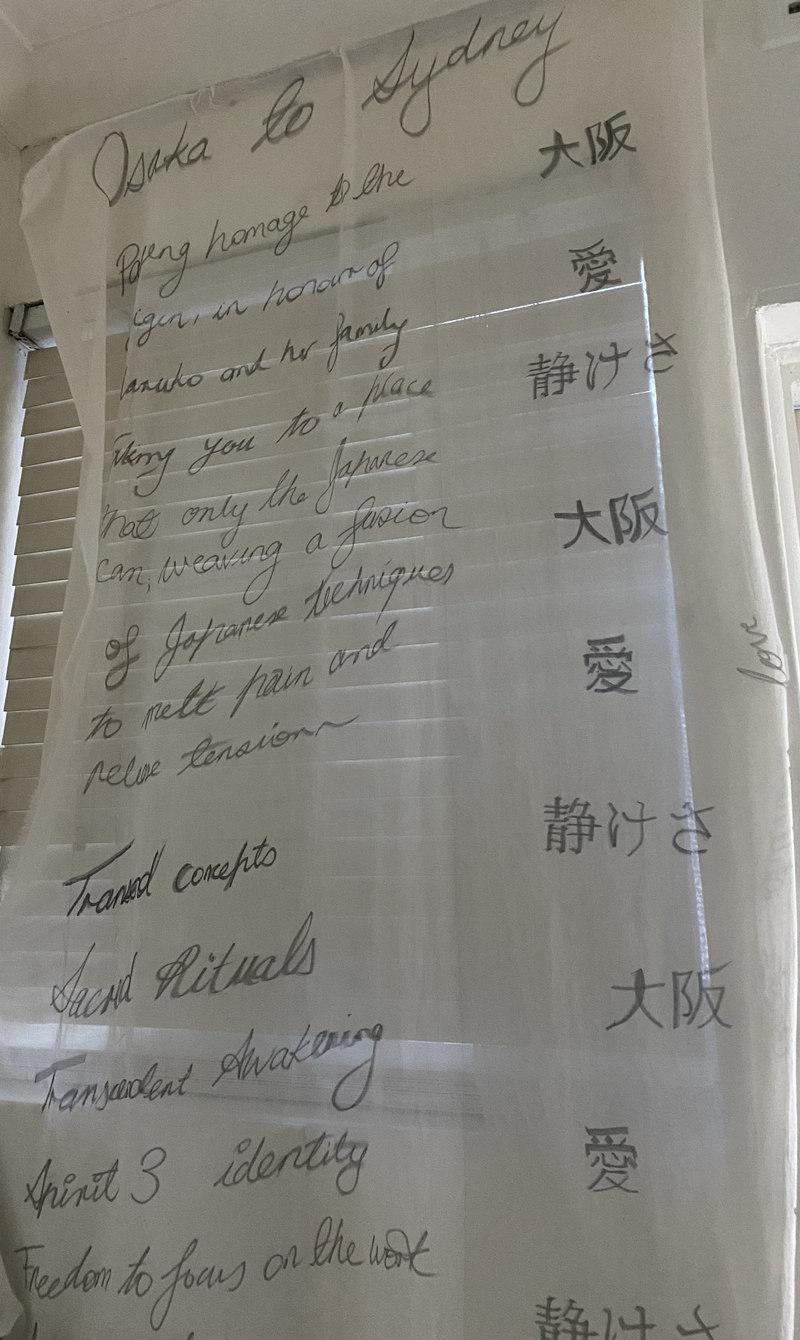 Osaka to Sydney
大阪
Paying homage to the
愛
in honour of
and her family
静けさ
Taking you to a place
that only the Japanese
can, weaving a fusion
大阪
of Japanese techniques
to melt pain and
愛
love
tension
静けさ
concepts
Sacred Rituals
大阪
Transcendent Awakening
愛
Spirit 3 identity
Freedom to focus on the work
静けさ